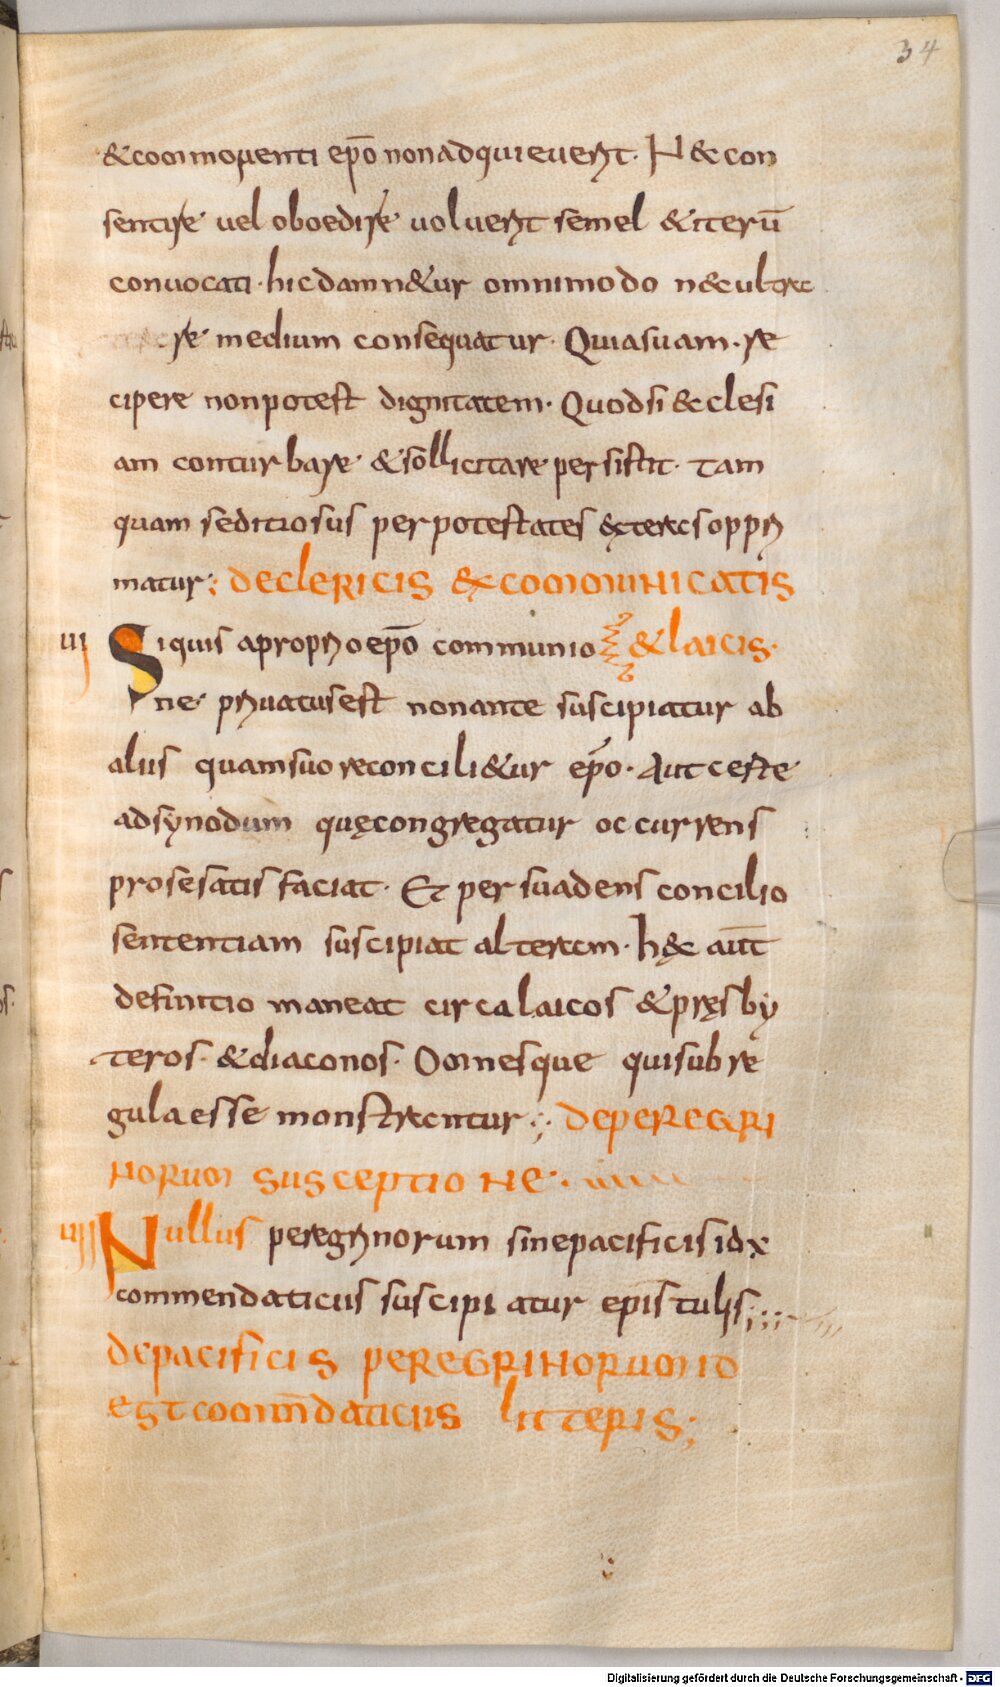 34
&commonenti ep̄o non adquieuerit. N&con
sentire uel oboedire uoluerit semel &iterū
conuocati. hic damn&ur omnimodo n&cultac
re medium consequatur. Quia suam. re
cipere non potest dignitatem. Quod si &clesi
am conturbare &sollicitare persistit. tam
quam seditiosus per potestates exteras oppri
matur; DE CLERICIS EXCOMMUNICATIS
III Siquis a proprio ep̄o communio & laicis.
ne priuatus est non ante suscipiatur ab
aliis quam suo reconcili&ur ep̄o. Aut certe
ad synodum quę congregatur occurrens
pro se satisfaciat. Et persuadens concilio
sententiam suscipiat alteram. hęc aūt
definitio maneat circa laicos &pręsby
teros. &diaconos. Omnesque qui sub re
gula esse monstrantur; DE PEREGRI
NORUM SUSCEPTIONE.
IIII Nullus peregrinorum sine pacificis id÷
commendaticiis suscipiatur epistulis;
DE PACIFICIS PEREGRINORUM ID
EST COMM̄DATICIIS LITTERIS;
Digitalisierung gefördert durch die Deutsche Forschungsgemeinschaft - DFG